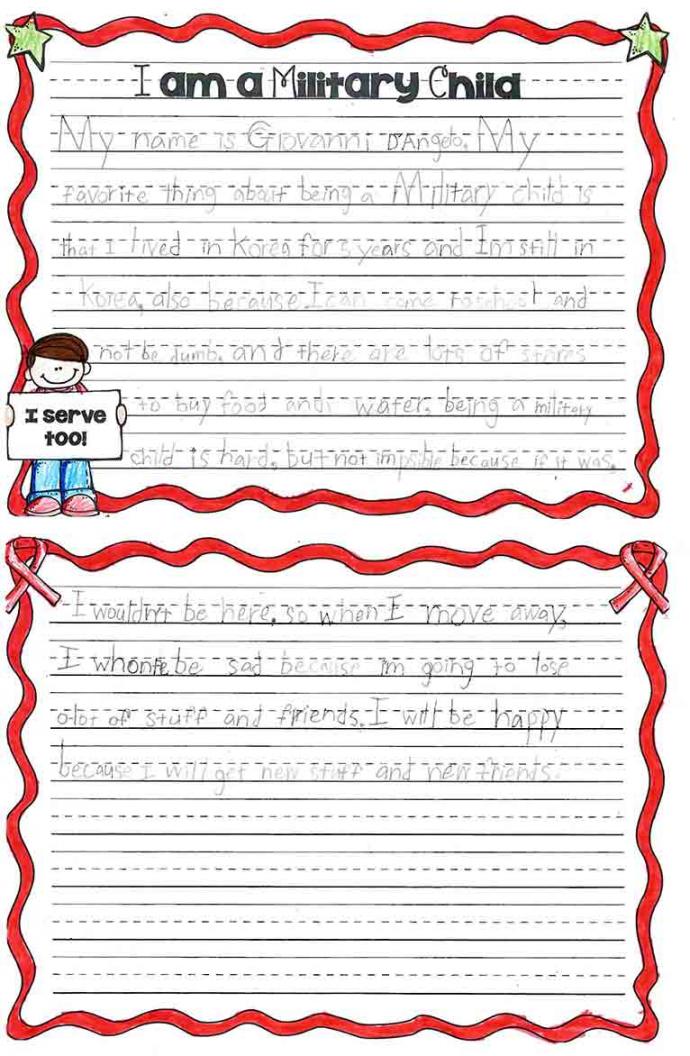 I am a Military Child
My name is Giovanni D'Angelo. My
favorite thing about being a Military child is
that I lived in Korea for 3 years and Im still in
Korea, also because I can come to school and
not be dumb. and there are lots of stores
to buy food and water. being a military
child is hard, but not impsible because if it was,
I serve
too!
I wouldn't be here, so when I move away,
I whonte be sad because im going to lose
a lot of stuff and friends. I will be happy
because I will get new stuff and new friends.